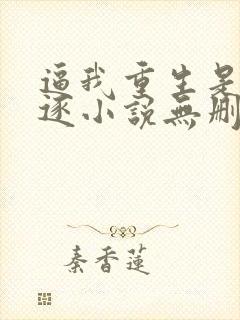 逼我重生是
逐小說無刪
秦香蓮